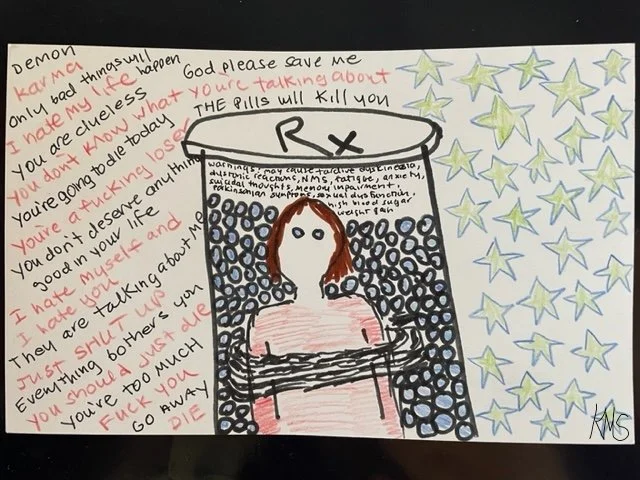 DEMON
karma
Only bad things will happen
I hate my life
You are clueless
You don't know what you're talking about
You're going to die today
You're a fucking loser
You don't deserve anything
good in your life
I hate myself and
I hate you
They are talking about me
JUST SHUT UP
Everything bothers you
You should just die
You're too MUCH
FUCK YOU
GO AWAY
DIE
God please save me
THE Pills will kill you
Rx
warnings: may cause tardive dyskinesia,
dystonic reactions, NMS, fatigue, anxiety,
suicidal thoughts, memory impairment,
parkinsonian symptoms, sexual dysfunction,
high blood sugar
weight gain
KMS